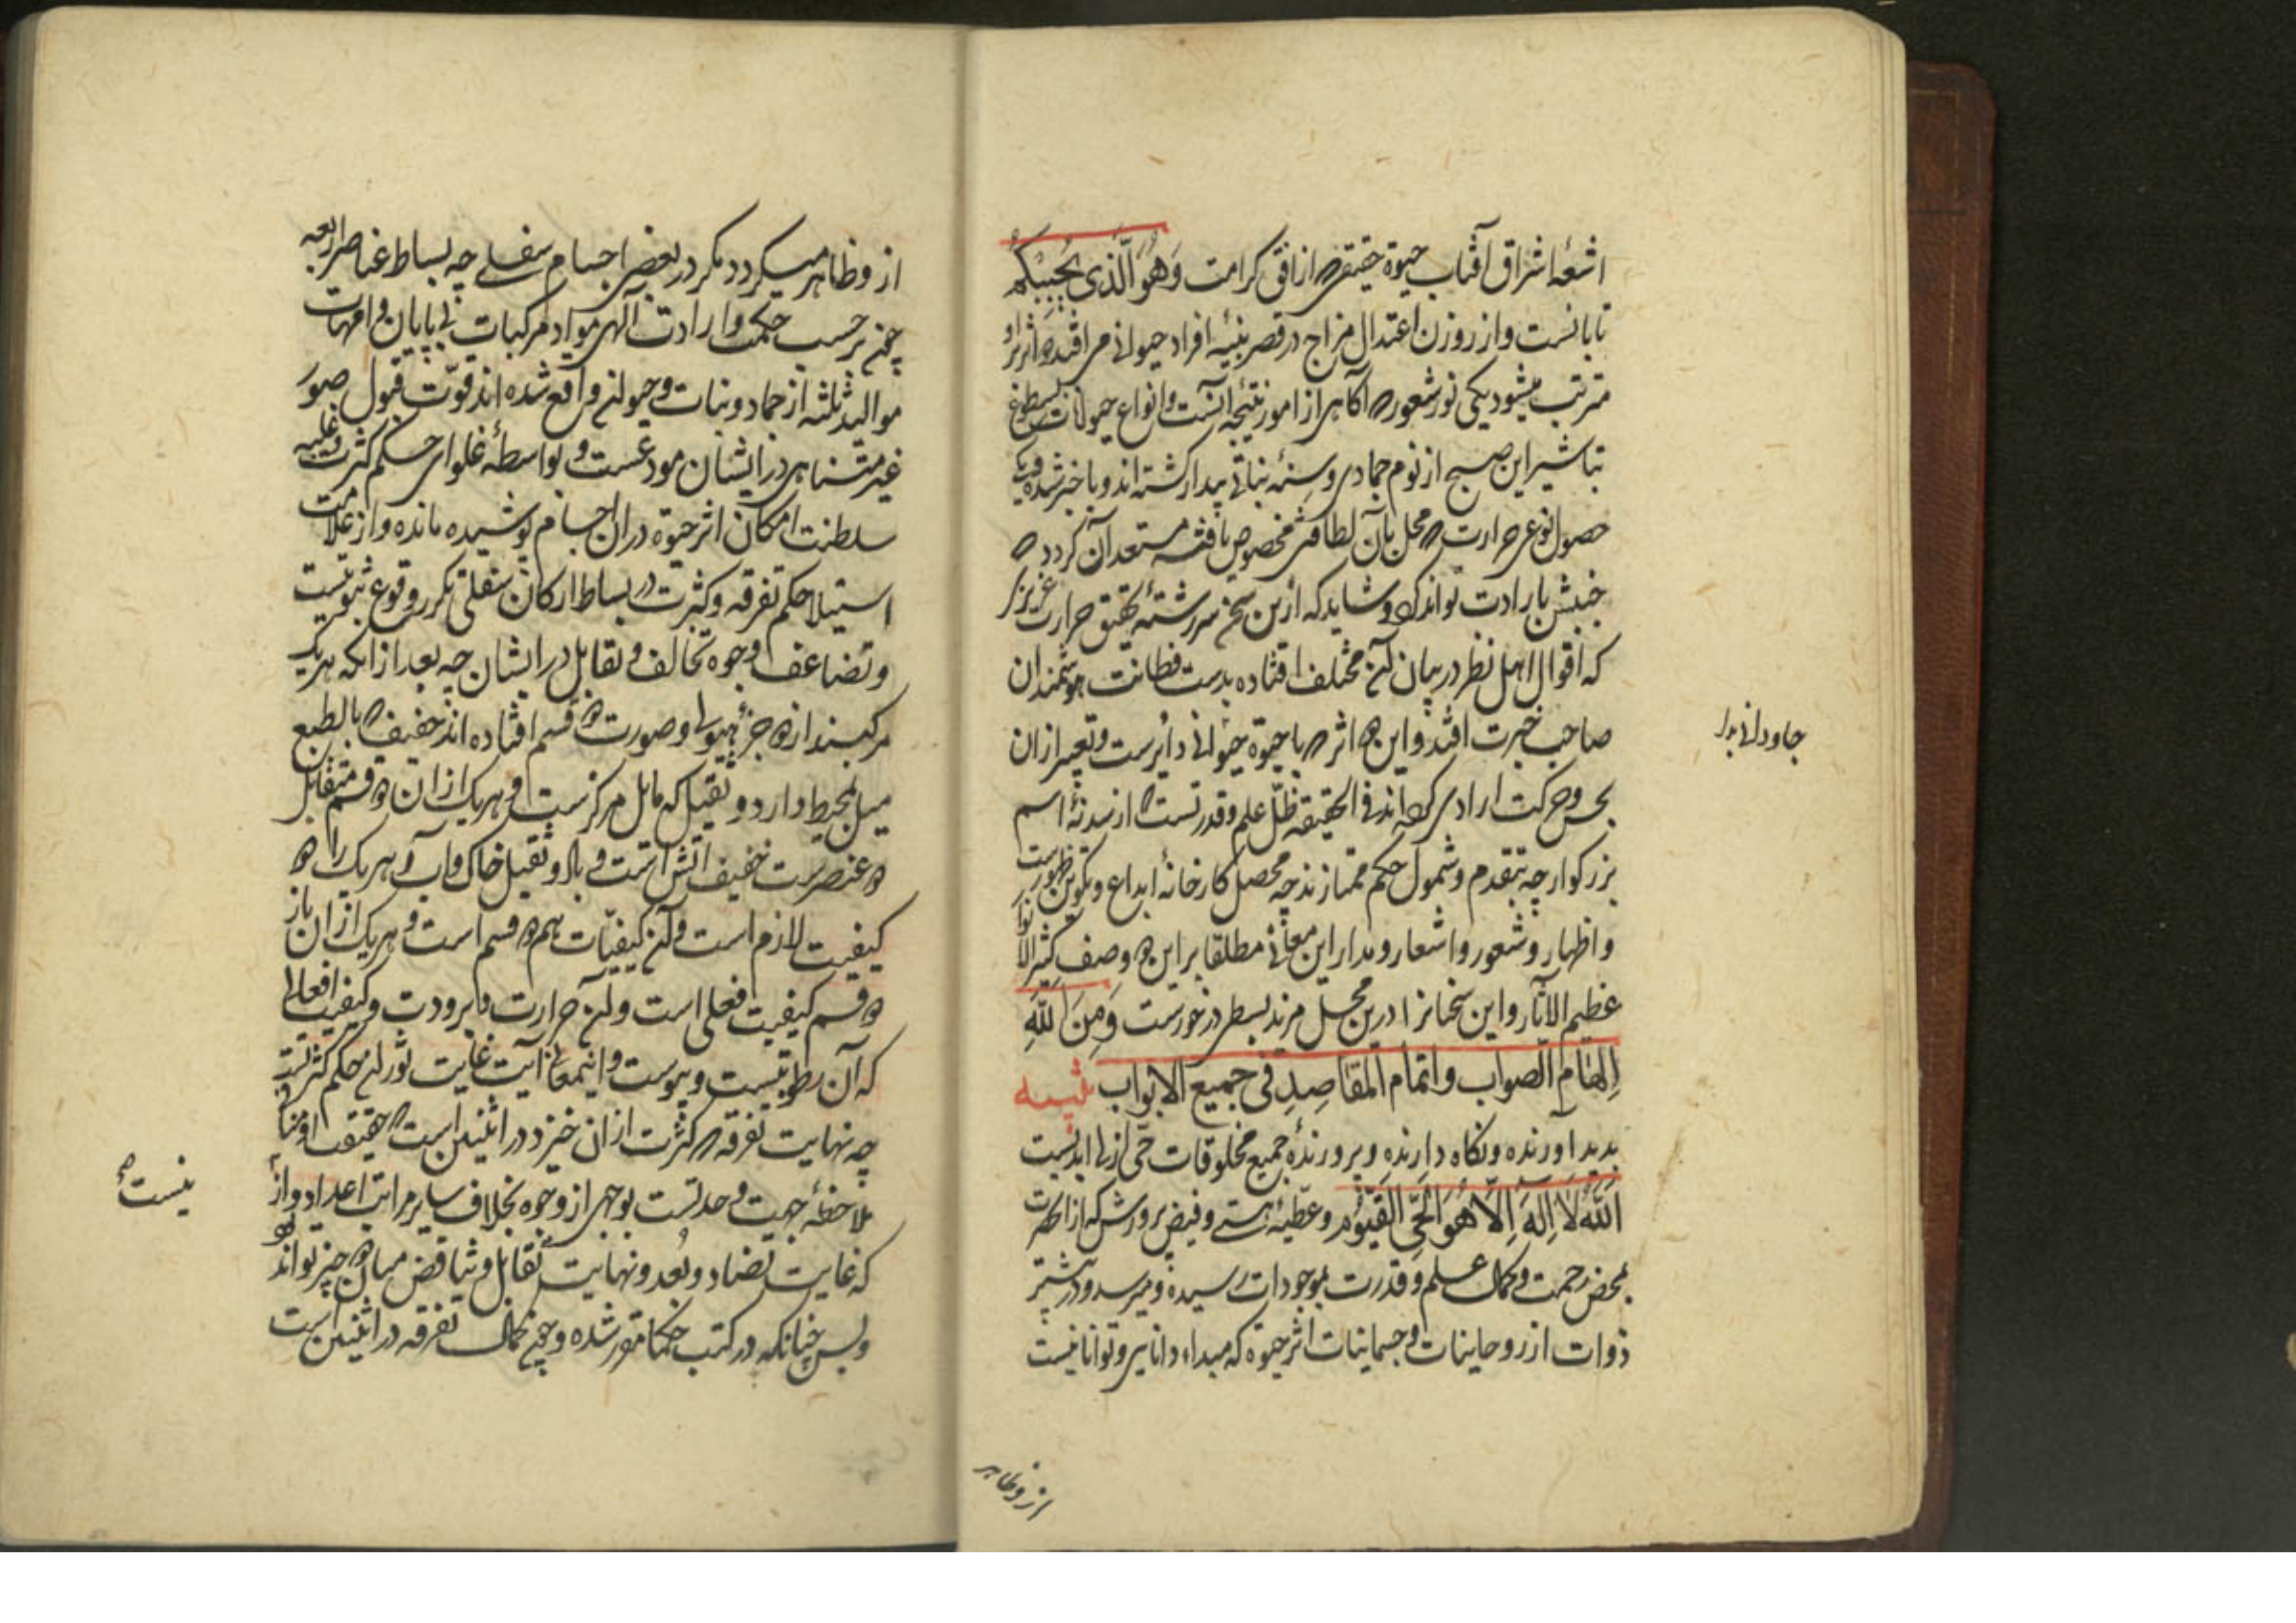 اشعۀ اشراق آفتاب حیوة حقیقی از افق کرامت وَهُوَ الَّذی یُحْیِیکُمْ
تابانست و از روزن اعتدال مزاج در قصر بنیۀ افراد حیوانی می افتد و اثر برو
مترتب میشود یکی نور شعور آکاهی از امور نتیجۀ آنست و انواع حیوانات بسطوع
تباشیر این صبح از نوم جمادی و سنۀ نباتی بیدار کشته اند و با خبر شده
حصول نوعی حرارت محل بآن لطافتی مخصوص یافته مستعد آن کردد
جنبش بارادت تواند کرد و شاید که ازین سخن سررشتۀ تحقیق حرارت غریزی
که اقوال اهل نظر در بیان آن مختلف افتاده بدست فطانت هوشمندان
صاحب خبرت افتد و این اثر با حیوة حیوانی دایرست و تعبیر از ان
بحس و حرکت ارادی کرده اند فی الحقیقه ظلّ علم و قدرتست از سدنۀ اسم
بزرکوار چه بتقدم و شمول حکم ممتازند چه محصل کارخانۀ ابداع و تکوین ظهورست
و اظهار و شعور و اشعار و مدار این معانی مطلقا بر این وصف کثیر الانوار
عظیم الآثار و این سخنانرا درین محل مزید بسطی در خورست وَمِنَ اللّٰهِ
اِلهَامِ الصواب و اتمام المقاصِدِ فی جمیع الابواب تنبیه
پدید آورنده و نکاه دارنده و پرورندۀ جمیع مخلوقات حیّ ازلی ابدیست
اَللّٰهُ لَا اِلٰهَ اِلَّا هُوَ الْحَیُّ الْقَیُّوْم و عطیۀ هستی و فیض پرورش که از انحضرت
بمحض رحمت و کمال علم و قدرت بموجودات رسیده و میرسد و در بیشتر
ذوات از روحانیات و جسمانیات اثر حیوة که مبداء دانایی و تواناییست
از و ظاهر
از و ظاهر میکردد مکر در بعضی اجسام سفلی چه بسایط عناصر اربعه
چون بر حسب حکمت و ارادت الهی مواد مرکبات بی پایان و امهات
موالید ثلثه از جماد و نبات و حیوان واقع شده اند قوّت قبول صور
غیر متناهی در ایشان مودعست و بواسطۀ غلوای حکم کثرت و غلبه
سلطنت امکان اثر حیوة دران اجسام پوشیده مانده و از علامت
استیلا حکم تفرقه و کثرت در بسایط ارکان سفلی تکرر وقوع ثنویتست
و تضاعف وجوه تخالف و تقابل در ایشان چه بعد از انکه هر یک
مرکبند از جزء هیولی و صورت قسم افتاده اند خفیف بالطبع
میل بمحیط دارد و ثقیل که مایل مرکزست و هر یک از ان قسم متقابل
عنصرست خفیف آتش است و باد و ثقیل خاک و آب و هر یک را
کیفیت لازم است و آن کیفیّات هم قسم است و هر یک از ان باز
قسم کیفیت فعلی است و آن حرارت و برودت و کیفیت انفعالی
که آن رطوبتست و یبوست و اینمعانی آیت غایت ثوران حکم کثرتست
چه نهایت تفرقه کثرت از ان خیزد در اثنین است حقیقت او منشا
ملاحظۀ جمیت و حدتست بوجهی از وجوه بخلاف سایر مراتب اعداد و از
که غایت تضاد و بُعد و نهایت تقابل و تناقض میان چیز تواند بود
و بس چنانکه در کتب حکما مقرر شده و چون کمال تفرقه در اثنین است